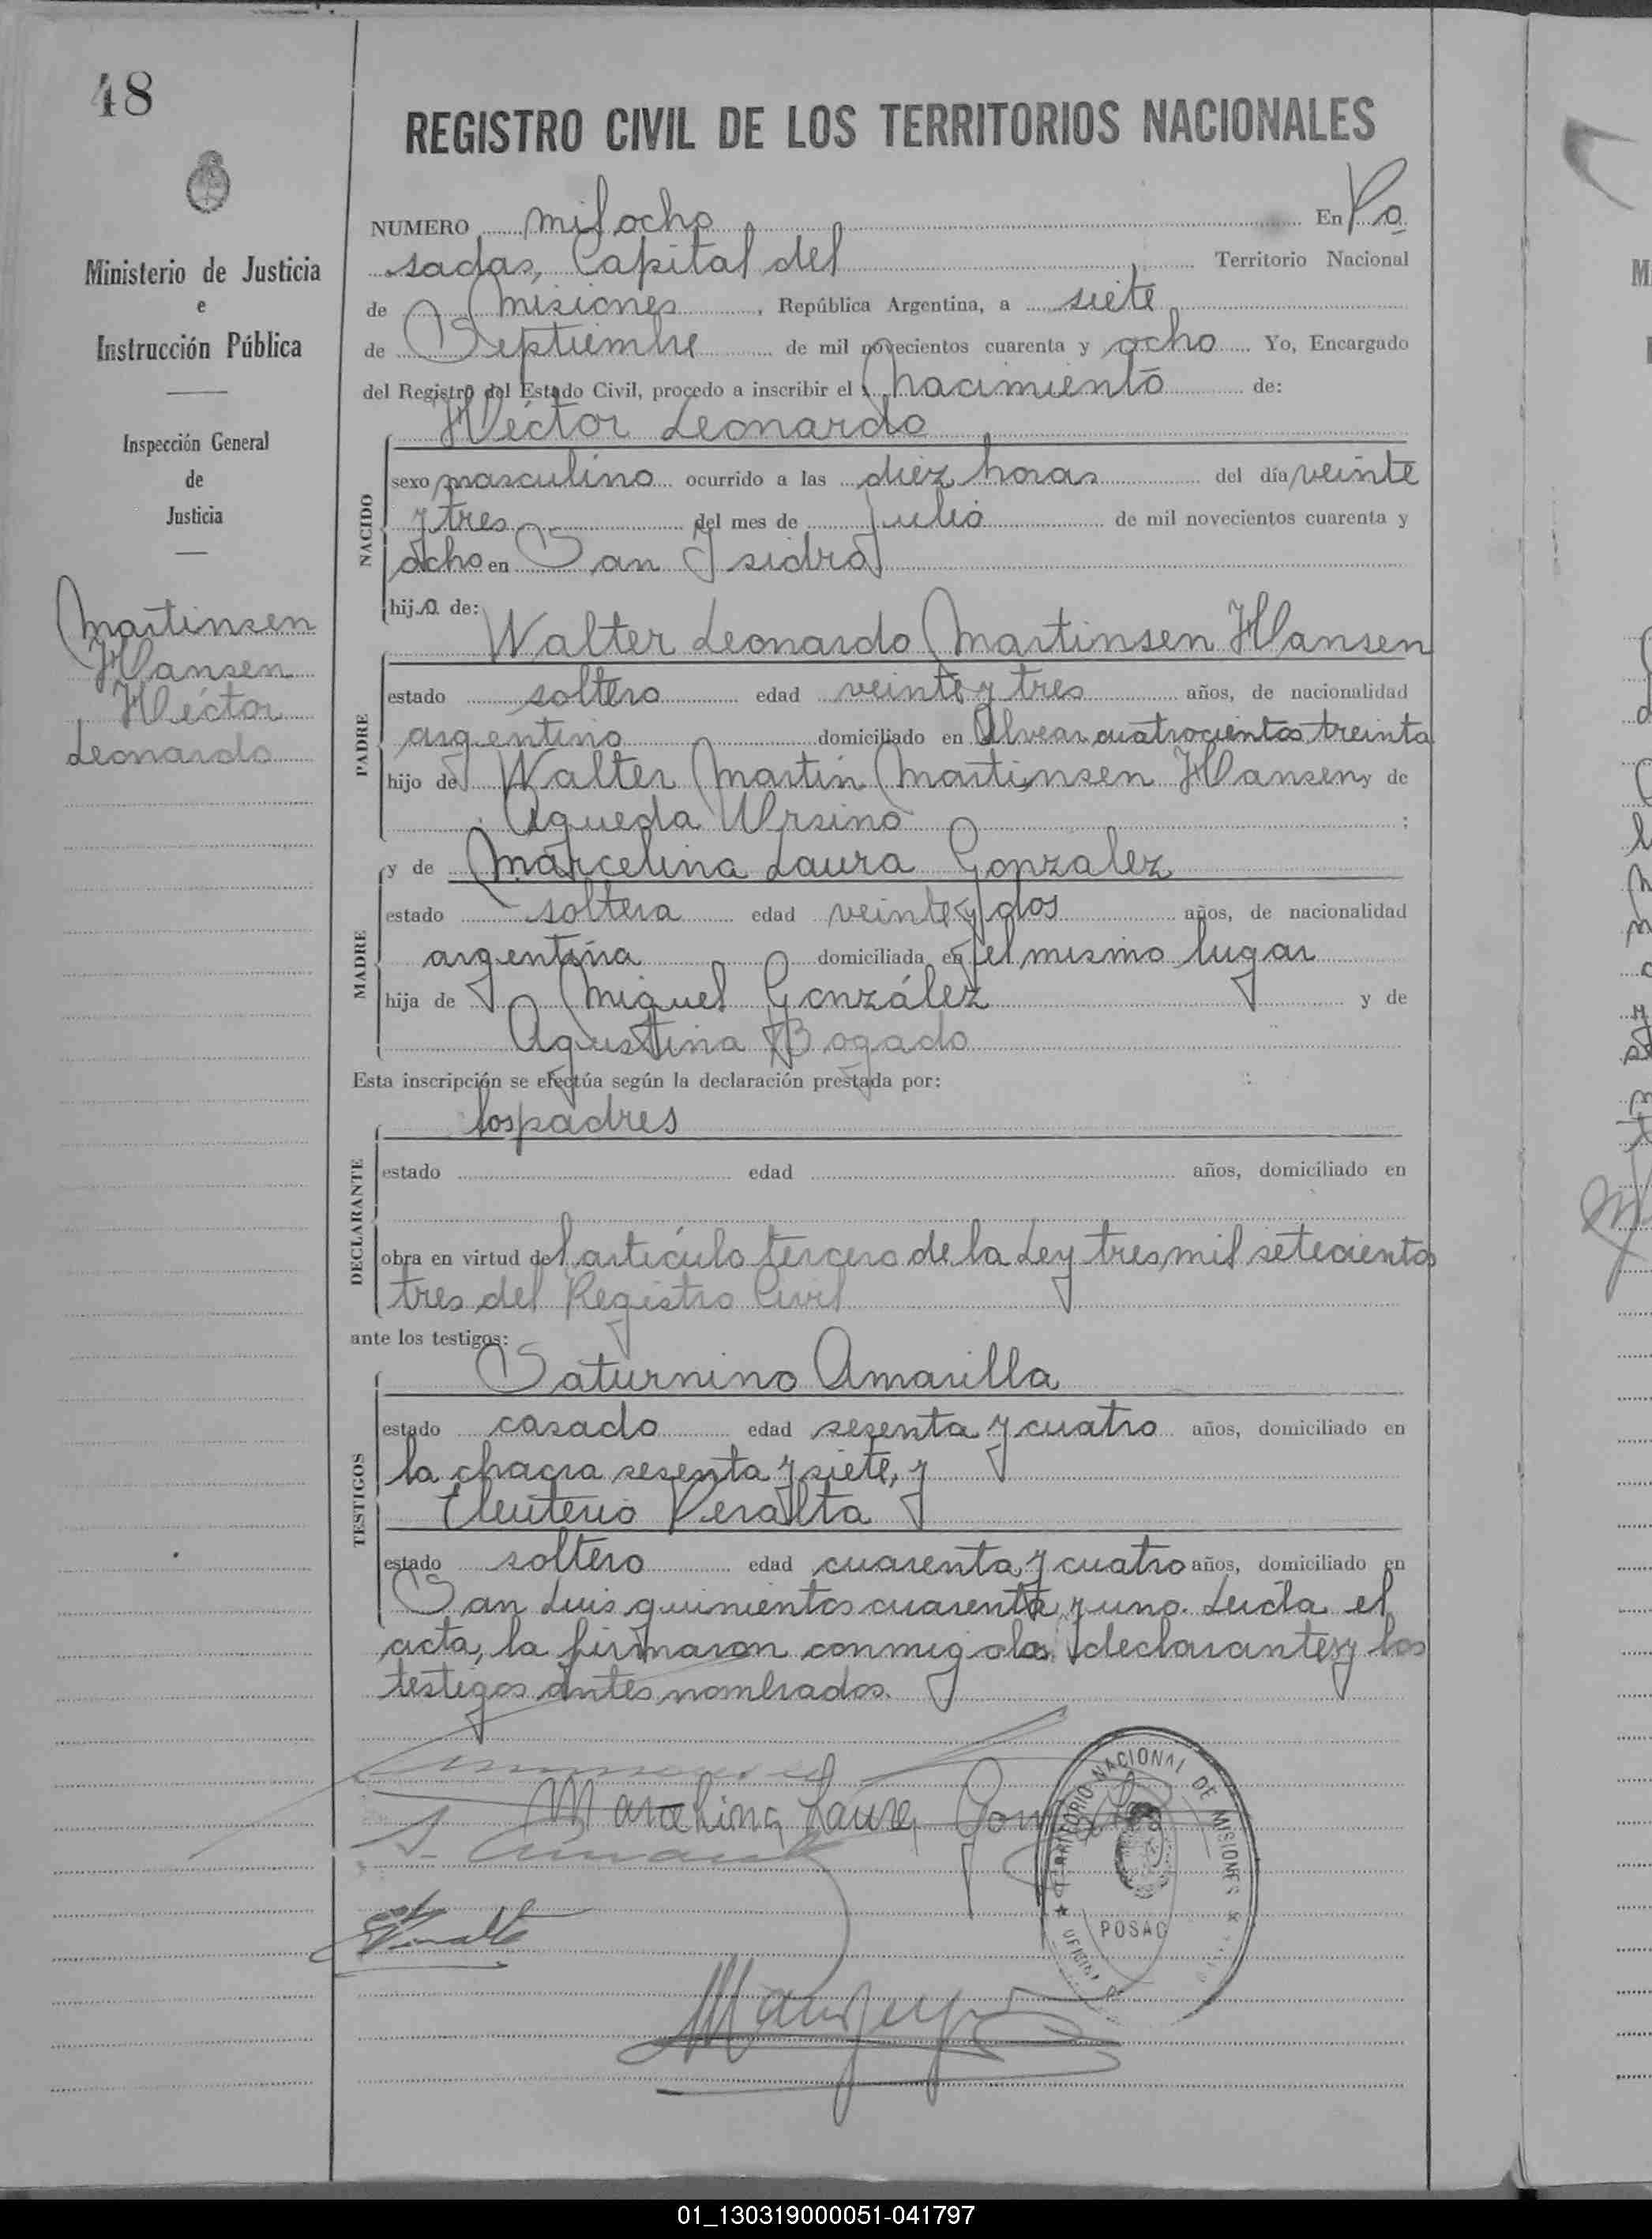 48
REGISTRO CIVIL DE LOS TERRITORIOS NACIONALES
Ministerio de Justicia
e
Instrucción Pública
Inspección General
de
Justicia
Martinsen
Hansen
Héctor
Leonardo
NUMERO mil ocho En Po
sadas, Capital del Territorio Nacional
de Misiones, República Argentina, a siete
de Septiembre de mil novecientos cuarenta y ocho Yo, Encargado
del Registro del Estado Civil, procedo a inscribir el nacimiento de:
Héctor Leonardo
NACIDO
sexo masculino ocurrido a las diez horas del día veinte
y tres del mes de Julio de mil novecientos cuarenta y
ocho en San Isidro
hijo de:
Walter Leonardo Martinsen Hansen
PADRE
estado soltero edad veinte y tres años, de nacionalidad
argentino domiciliado en Alvear cuatrocientos treinta
hijo de Walter Martin Martinsen Hansen y de
Agueda Ursino ;
y de Marcelina Laura Gonzalez
MADRE
estado soltera edad veinte y dos años, de nacionalidad
argentina domiciliada en el mismo lugar
hija de Miguel González y de
Agustina Bogado
Esta inscripción se efectúa según la declaración prestada por:
los padres
DECLARANTE
estado edad años, domiciliado en
obra en virtud del artículo tercero de la Ley tres mil setecientos
tres del Registro Civil
ante los testigos:
Saturnino Amarilla
TESTIGOS
estado casado edad sesenta y cuatro años, domiciliado en
la chacra sesenta y siete, y
Eleuterio Peralta
estado soltero edad cuarenta y cuatro años, domiciliado en
San Luis quinientos cuarenta y uno. Leída el
acta, la firmaron conmigo los declarantes y los
testigos antes nombrados.
Marcelina Laura
TERRITORIO NACIONAL DE MISIONES
POSAD
01_130319000051-041797